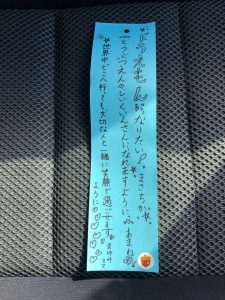 ドラえもんになりたい!! まさちか
どうぶつえんのしいくいんさんになれますように… あまね
世界中どこへ行っても、大切な人と一緒に笑顔で過ごせます
ように♡♡♡♡♡♡